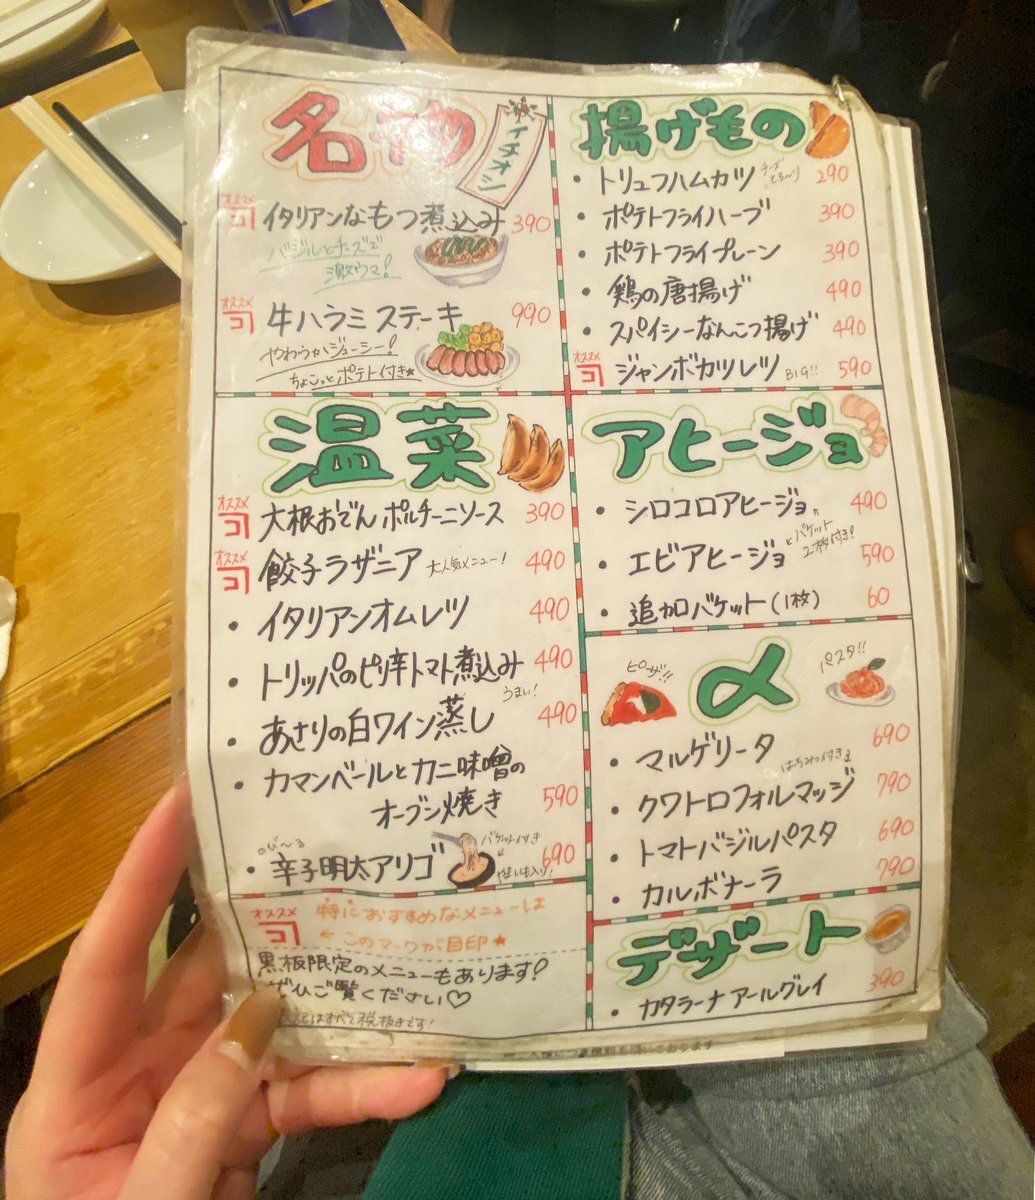 名物
イチオシ
オススメ
イタリアンなもつ煮込み 390
バジルとチーズで
激ウマ!
オススメ
牛ハラミステーキ 990
やわらかジューシー!
ちょこっとポテト付き★
温菜
オススメ
大根おでん ポルチーニソース 390
オススメ
餃子ラザニア 大人気メニュー! 490
・イタリアンオムレツ 490
・トリッパのピリ辛トマト煮込み 490
うまい!
・あさりの白ワイン蒸し 490
・カマンベールとカニ味噌の
オーブン焼き 590
のび〜る
・辛子明太アリゴ 690
バゲット付き
やまいも入り!
オススメ
特におすすめなメニューは
← このマークが目印★
黒板限定のメニューもあります!
ぜひご覧ください♡
表記はすべて税抜きです!
揚げもの
・トリュフハムカツ チーズとろ〜り 290
・ポテトフライハーブ 390
・ポテトフライプレーン 390
・鶏の唐揚げ 490
・スパイシーなんこつ揚げ 490
オススメ
ジャンボカツレツ BIG!! 590
アヒージョ
・シロコロアヒージョ 490
・エビアヒージョ 590
バゲット
2枚付き!
・追加バゲット(1枚) 60
〆
ピザ!!
パスタ!!
・マルゲリータ 690
はちみつ付き
・クワトロフォルマッジ 790
・トマトバジルパスタ 690
・カルボナーラ 790
デザート
・カタラーナ アールグレイ 390